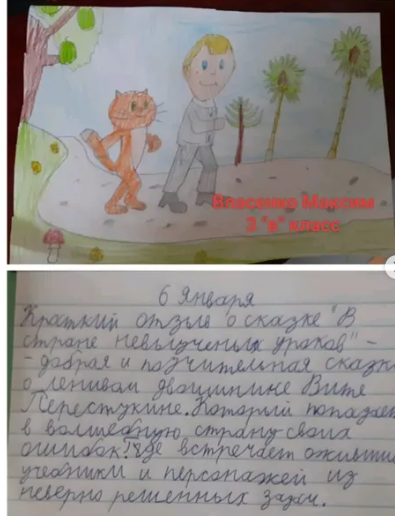 Власенко Максим
3 "в" класс
6 Января
Краткий отзыв о сказке "В
стране невыученных уроков" -
- добрая и поучительная сказка
о ленивом двоишнике Вите
Перестукине. Который попадает
в волшебную страну своих
ошибок! Где встречает оживши
учебники и персонажей из
неверно решенных задач.